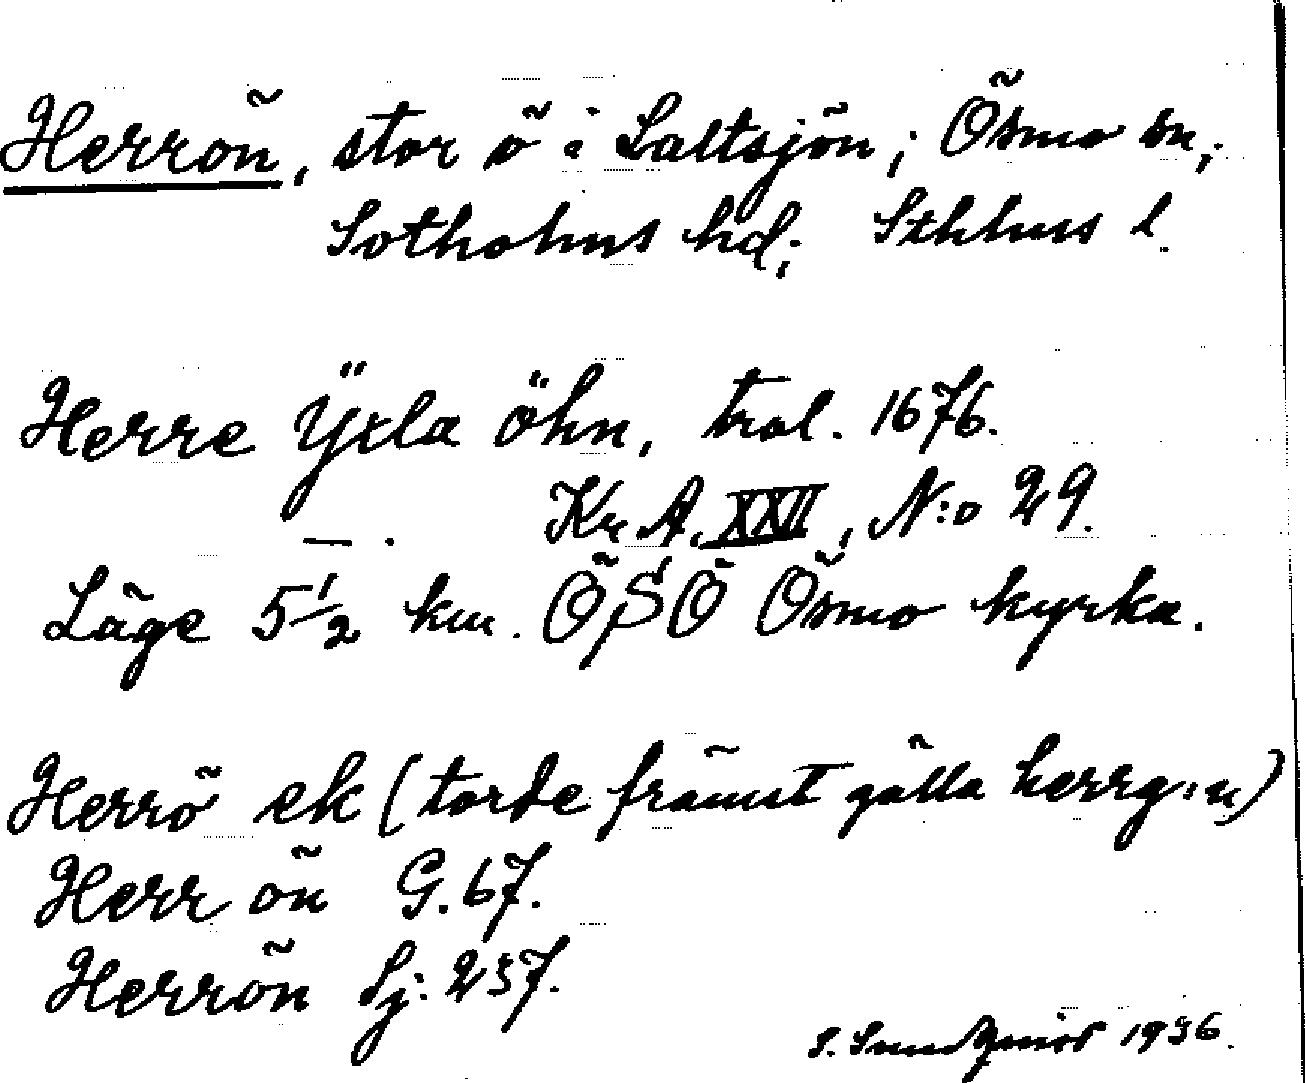 Herrön, stor ö i Saltsjön; Ösmo sn,;
Sotholms hd; Sthlms l.
Herre Ÿxla öhn, tral. 1676.
Kr. A. XXII, N:o 29.
Läge 5½ km. ÖSÖ Ösmo kyrka.
Herrö ek (torde främst gälla herrg:n)
Herr ön G. 67.
Herrön Sj: 237.
S. Sundquist 1936.